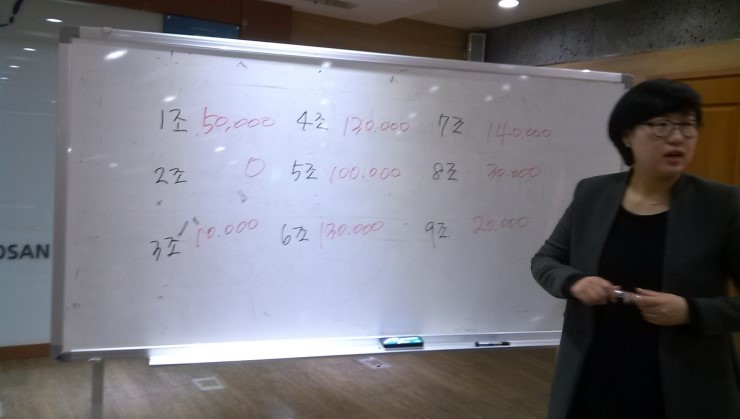 1조 50,000 4조 130.000 7조 140,000
2조 0 5조 100.000 8조 30.000
3조 10.000 6조 130.000 9조 20.000
OSAN